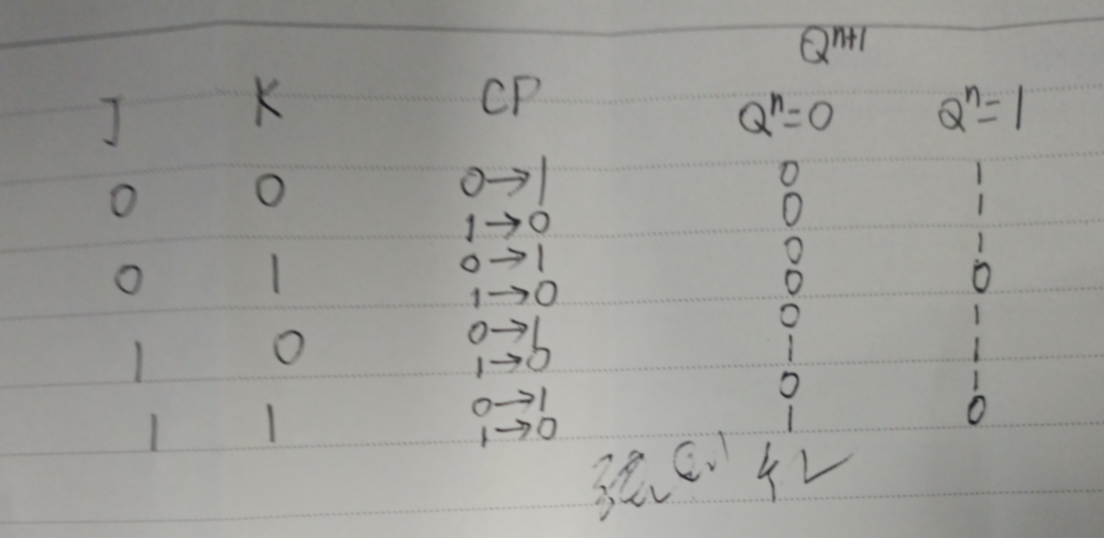 Qⁿ⁺¹
J K CP Qⁿ=0 Qⁿ=1
0 0 0→1 0 1
1→0 0 1
0 1 0→1 0 1
1→0 0 0
1 0 0→1 0 1
1→0 1 1
1 1 0→1 0 1
1→0 1 0